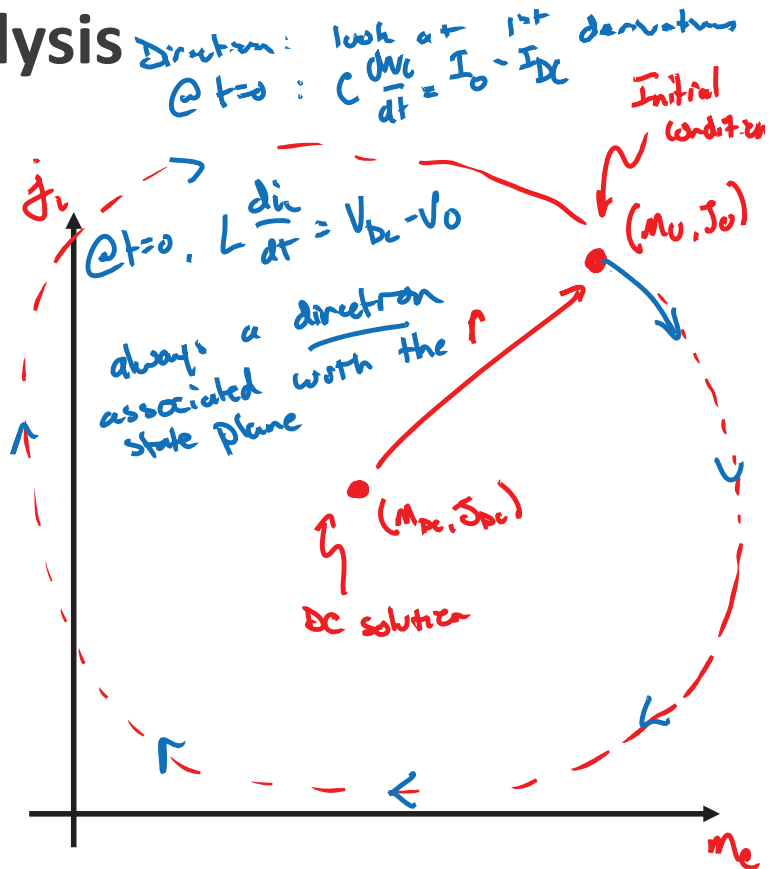 lysis
Direction: look at 1st derivatives
@ t=0 : C dvc/dt = I0 - IDC
Initial
condition
jL
@t=0, L diL/dt = VDC - V0
(M0, J0)
always a direction
associated with the
state plane
r
(MDC, JDC)
DC solution
mc